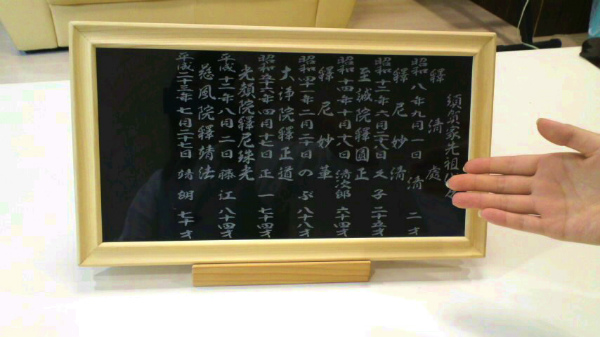 家先祖代々
釋 清
昭和八年九月一日 清 二才
釋 尼 妙 清
昭和十二年六月 日 文子 二十五才
至誠院釋圓正
昭和十四年十月十八日 清次郎 六十四才
釋 尼 妙 華
昭和四十二年二月二十日 のぶ 八十八才
大浄院釋正道
昭和五十六年四月十七日 正一 七十四才
光顔院釋尼珠光
平成十三年八月一日 藤江 八十四才
慈風院釋靖法
平成二十三年七月二十七日 靖朗 七十才